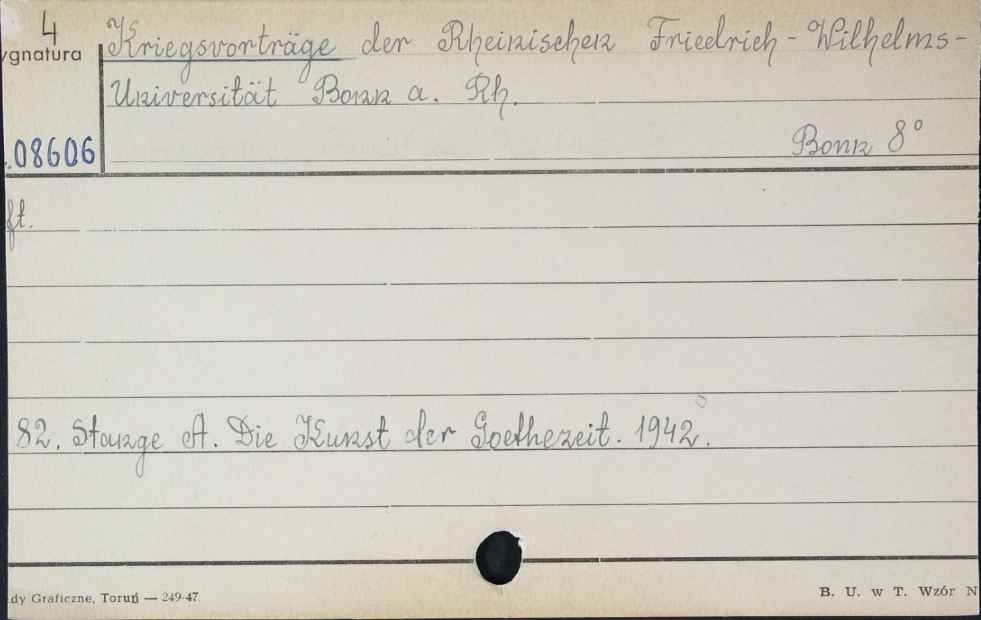 4
ygnatura
Kriegsvorträge der Rheinischen Friedrich-Wilhelms-
Universität Bonn a. Rh.
.08606
Bonn 8°
ft.
82. Stange A. Die Kunst der Goethezeit. 1942.
dy Graficzne, Toruń — 249-47
B. U. w T. Wzór N